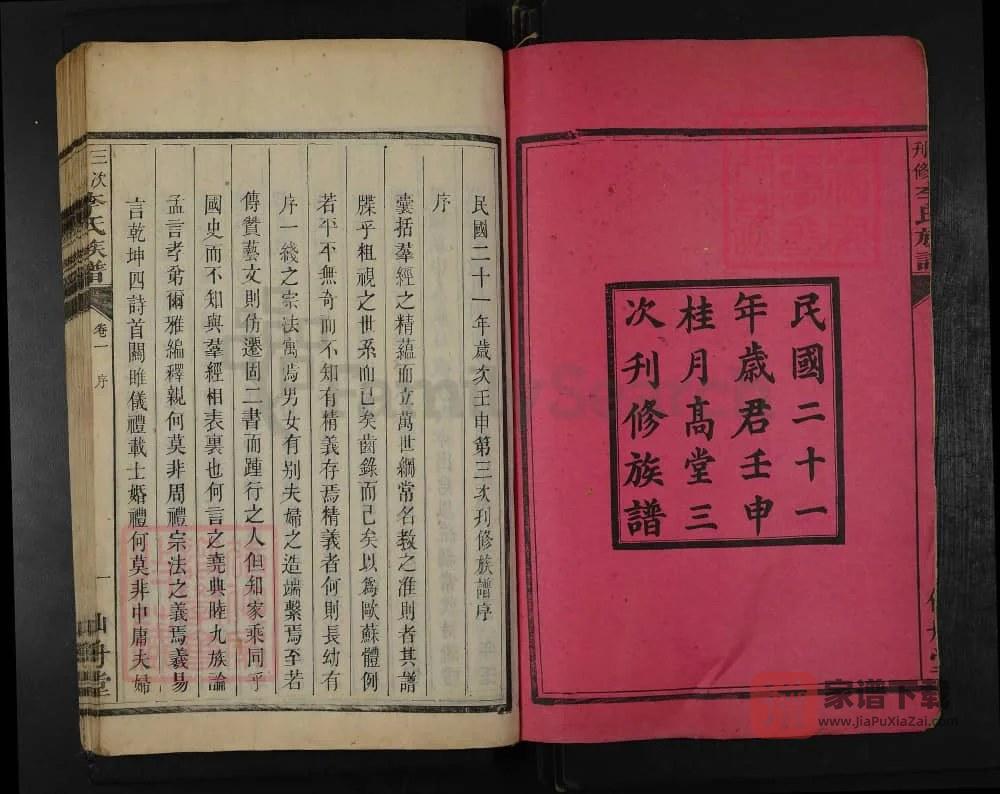 刋修李氏族譜
民國二十一
年歲君壬申
桂月高堂三
次刋修族譜
民國二十一年歲次壬申第三次刋修族譜序
序
囊括羣經之精蘊而立萬世綱常名教之准則者其譜
牒乎粗視之世系而已矣齒錄而已矣以爲歐蘇體例
若平平無奇而不知有精義存焉精義者何則長幼有
序一綫之宗法寓焉男女有别夫婦之造端繫焉至若
傳贊藝文則仿遷固二書而踵行之人但知家乘同乎
國史而不知與羣經相表裏也何言之堯典睦九族論
孟言孝弟爾雅編釋親何莫非周禮宗法之義焉羲易
言乾坤四詩首關雎儀禮載士婚禮何莫非中庸夫婦
三次李氏族譜
卷一
序
一
家谱下载
www.JiaPuXiaZai.com